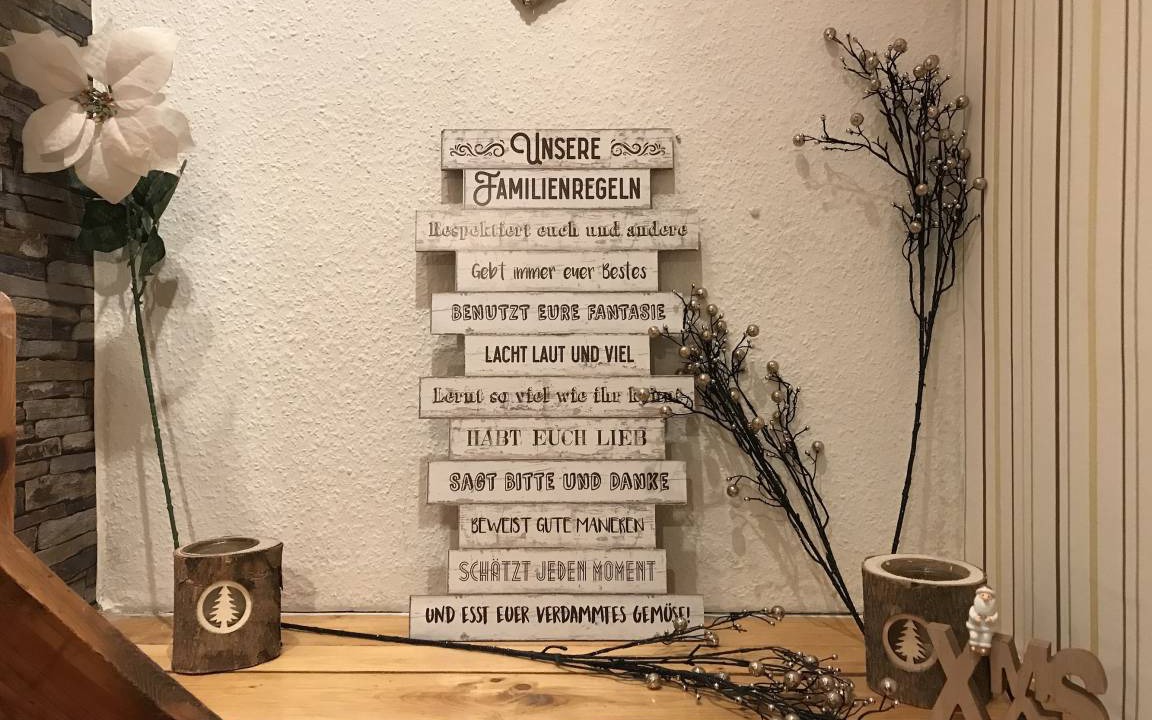 UNSERE
FAMILIENREGELN
Respektiert euch und andere
Gebt immer euer Bestes
BENUTZT EURE FANTASIE
LACHT LAUT UND VIEL
Lernt so viel wie ihr könnt
HABT EUCH LIEB
SAGT BITTE UND DANKE
BEWEIST GUTE MANIEREN
SCHÄTZT JEDEN MOMENT
UND ESST EUER VERDAMMTES GEMÜSE!
XMAS